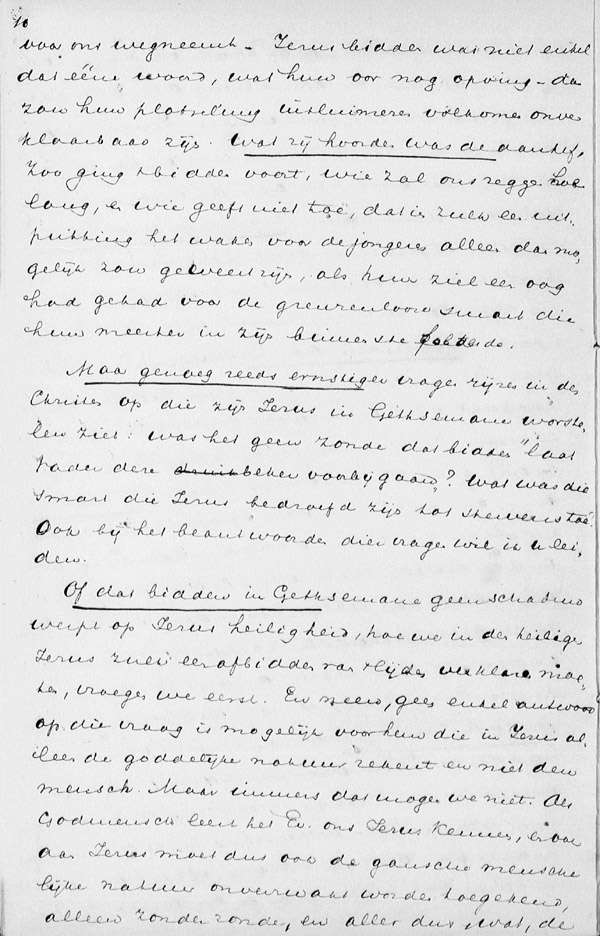 10
voor ons wegneemt - Jezus bidden was niet enkel
dat ééne woord, wat hun oor nog opving - dan
zou hun plotseling insluimeren volkomen onver
klaarbaar zijn. Wat zij hoorden was de aanhef,
zoo ging 't bidden voort, wie zal ons zeggen hoe
lang, en wie geeft niet toe, dat in zulk een uit-
putting het waken voor de jongeren alleen dan mo-
gelijk zou geweest zijn, als hun ziel een oog
had gehad voor de grenzenloozen smart die
hun meester in zijn binnenste folterde.
Maar genoeg reeds ernstiger vragen rijzen in den
Christen op die zijn Jezus in Gethsemane worste-
len ziet: was het geen zonde dat bidden "laat
Vader deze beker voorbijgaan"? Wat was die
smart die Jezus bedroefd zijn tot stervens toe?
Ook bij het beantwoorden dier vragen wil ik u lei-
den.
Of dat bidden in Gethsemane geen schaduw
werpt op Jezus heiligheid, hoe we in den heiligen
Jezus zulk een afbidden van 't lijden verklaren moe-
ten, vragen we eerst. En neen, geen enkel antwoord
op die vraag is mogelijk voor hem die in Jezus al-
leen de goddelijke natuur rekent en niet den
mensch. Maar immers dat mogen we niet. Als
Godmensch leert het Ev. ons Jezus kennen, en ook
aan Jezus moet dus ook de gansche mensche
lijke natuur onverwakt worden toegekend,
alleen zonder zonde, en alles dus, wat, de